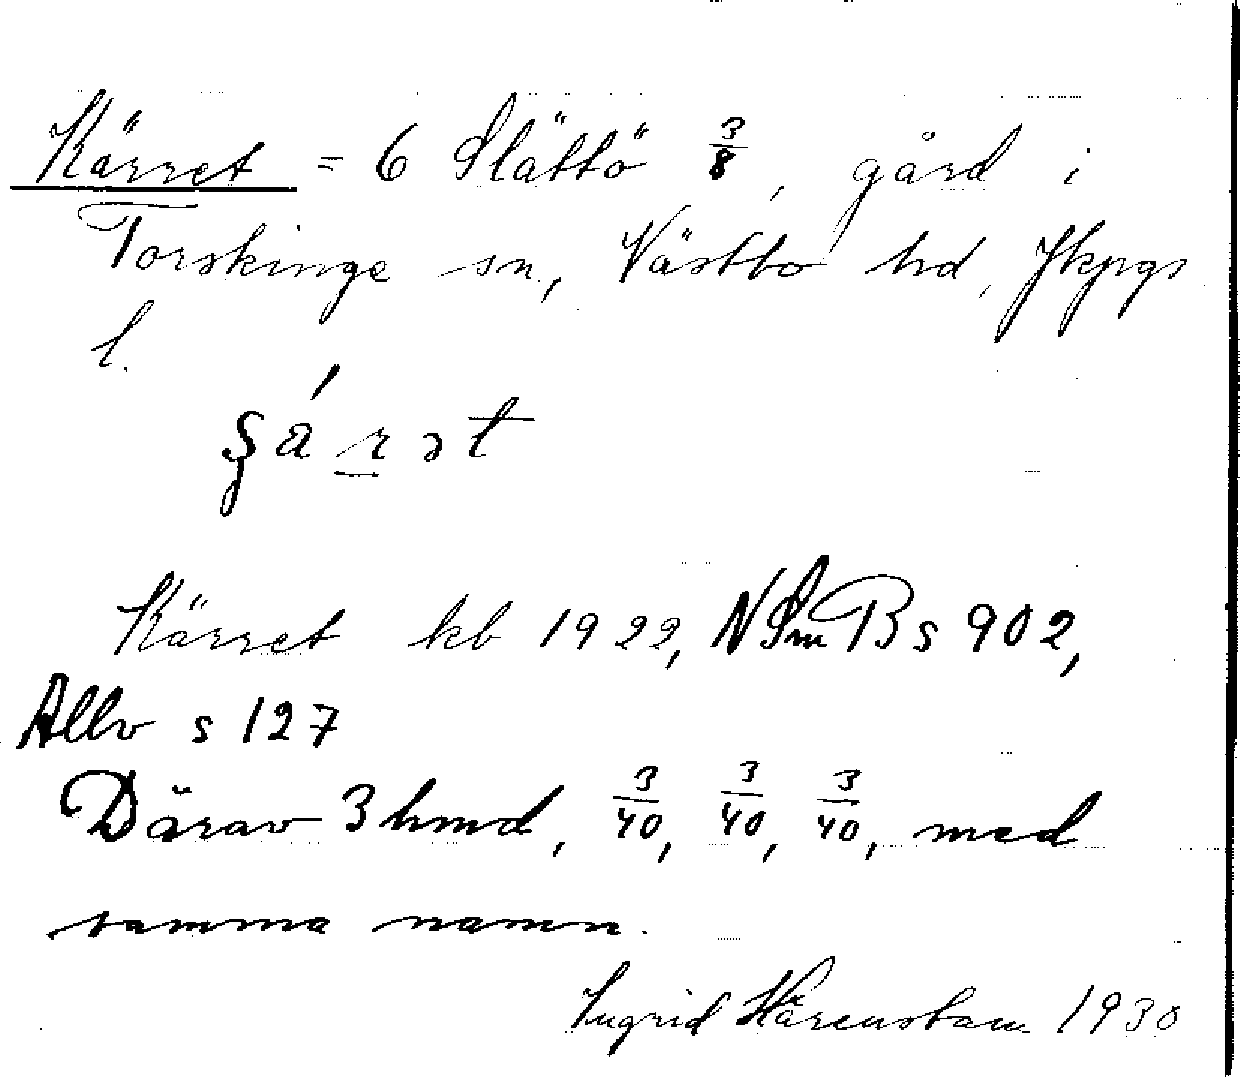 Kärret = 6 Slättö 3/8, gård i
Torskinge sn, Västbo hd, Jkpgs
l.
Kärret kb 1922, NSmB s 902,
Allv s 127
Därav 3 hmd, 3/40, 3/40, 3/40, med
samma namn.
Ingrid Härenstam 1930